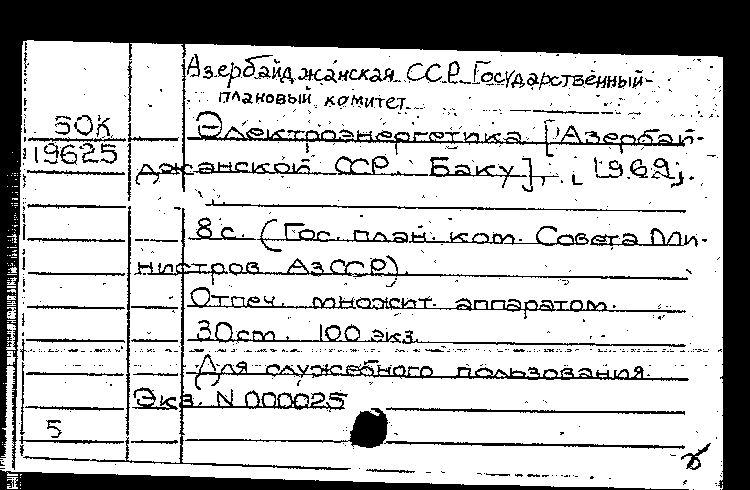 Азербайджанская ССР. Государственный
плановый комитет
50К
19625
Электроэнергетика [Азербай-
джанской ССР. Баку], [1969].
8 с. (Гос. план. ком. Совета Ми-
нистров АзССР).
Отпеч. множит. аппаратом.
30 cm. 100 экз.
Для служебного пользования.
Экз. N 000025
5